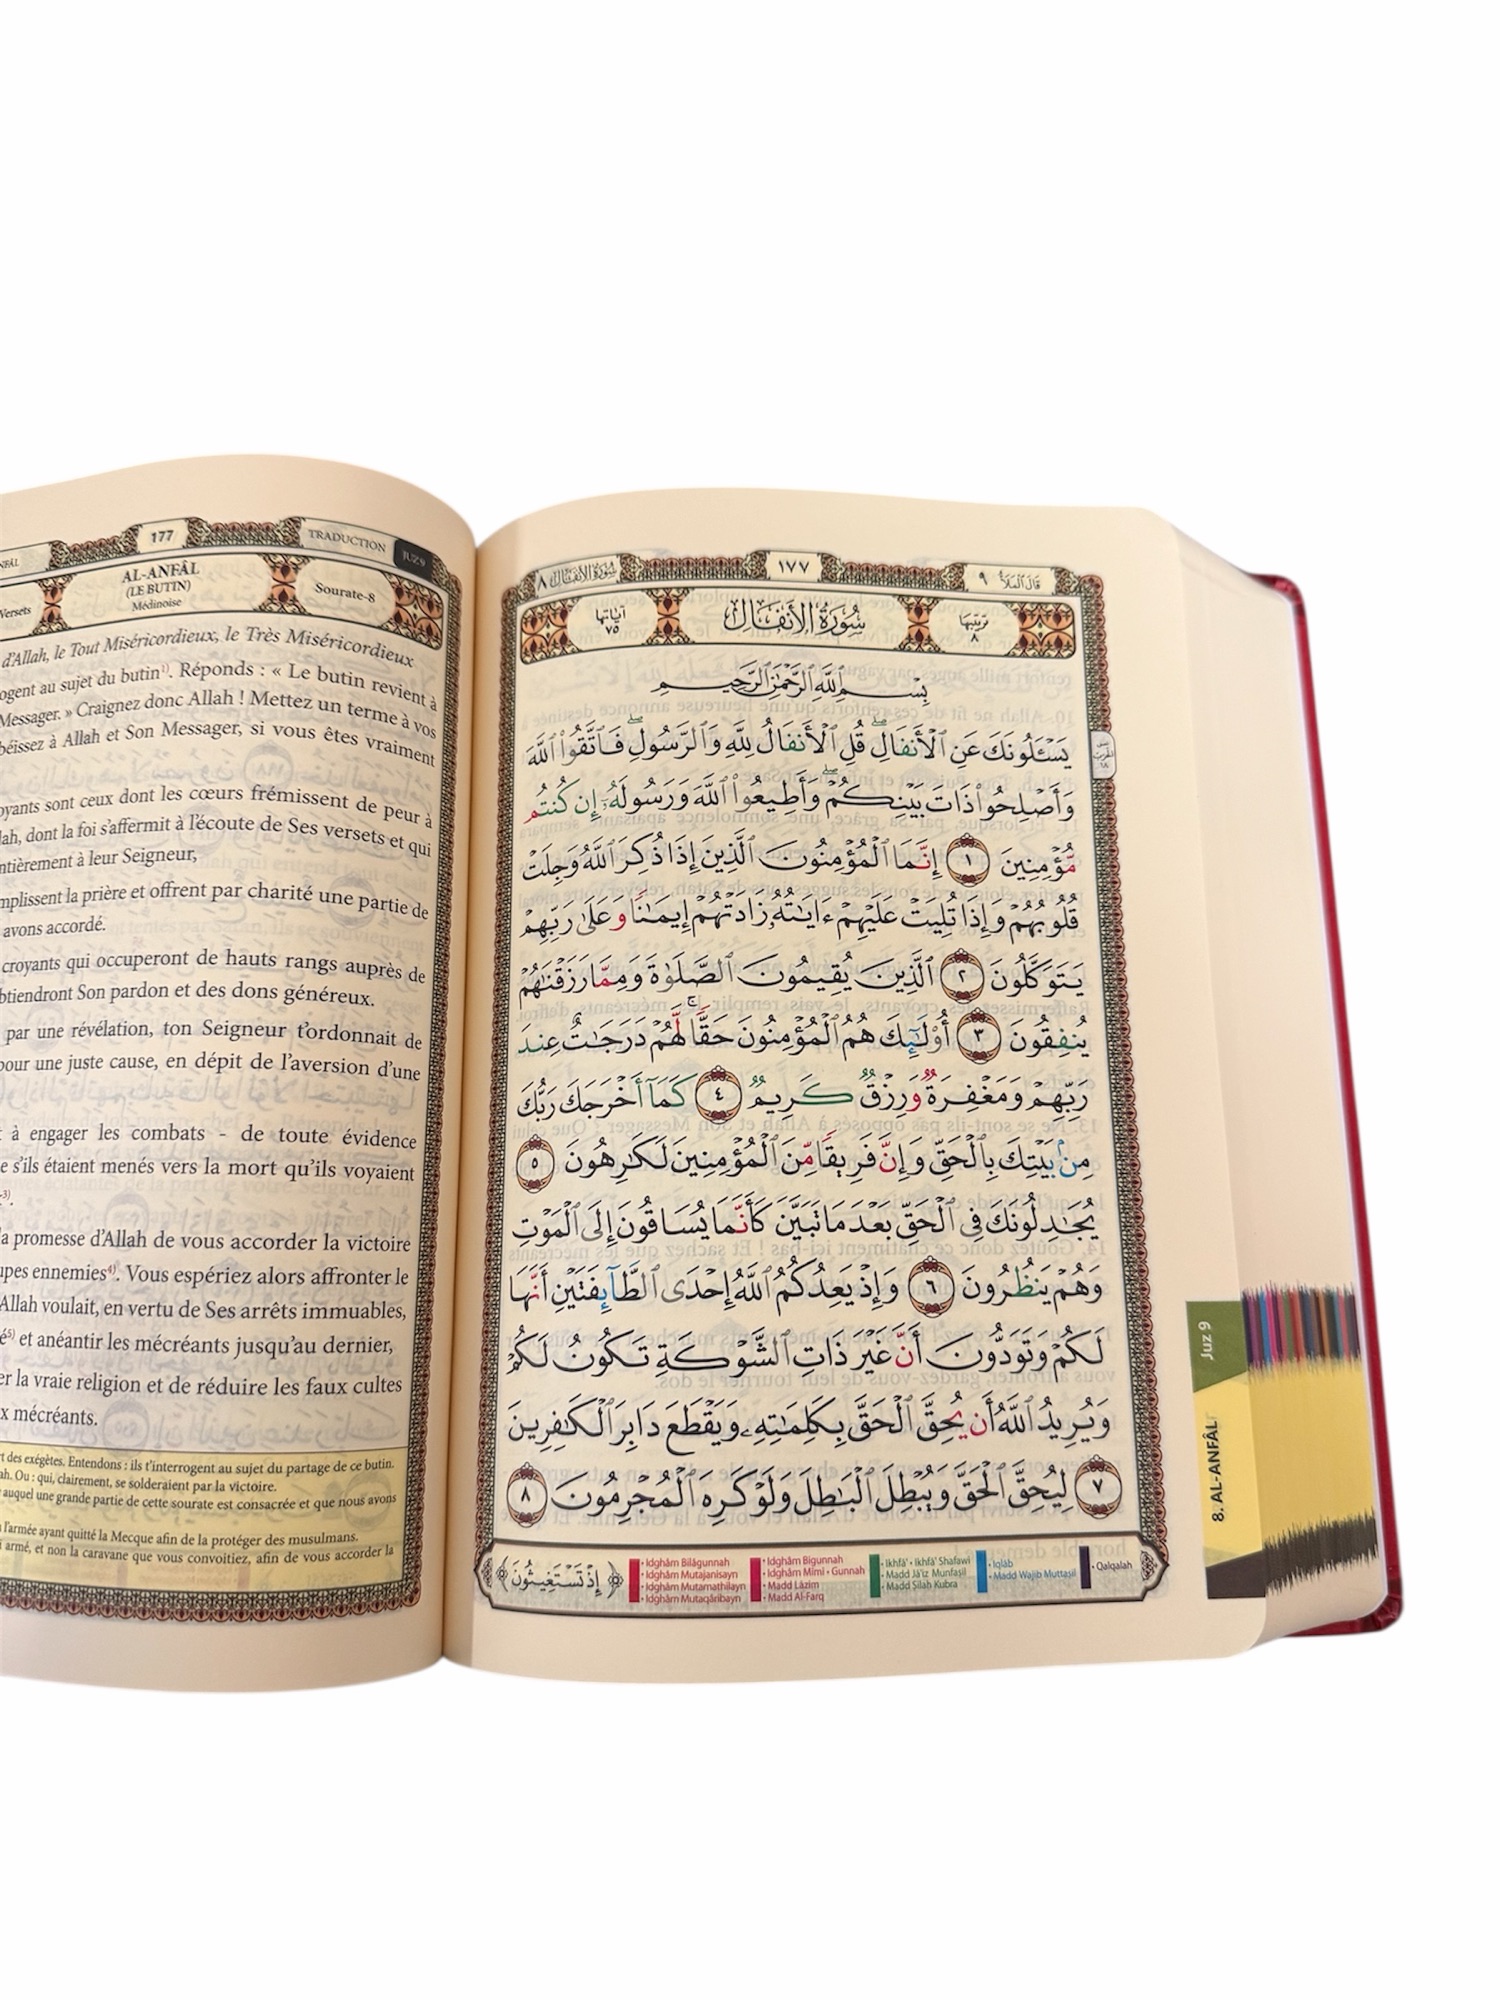 NFÂL
177
TRADUCTION
JUZ 9
Versets
AL-ANFÂL
(LE BUTIN)
Médinoise
Sourate-8
d'Allah, le Tout Miséricordieux, le Très Miséricordieux
ogent au sujet du butin¹⁾. Réponds : « Le butin revient à
Messager. » Craignez donc Allah ! Mettez un terme à vos
béissez à Allah et Son Messager, si vous êtes vraiment
oyants sont ceux dont les cœurs frémissent de peur à
lah, dont la foi s'affermit à l'écoute de Ses versets et qui
ntièrement à leur Seigneur,
mplissent la prière et offrent par charité une partie de
avons accordé.
croyants qui occuperont de hauts rangs auprès de
btiendront Son pardon et des dons généreux.
par une révélation, ton Seigneur t'ordonnait de
pour une juste cause, en dépit de l'aversion d'une
t à engager les combats - de toute évidence
e s'ils étaient menés vers la mort qu'ils voyaient
³⁾.
la promesse d'Allah de vous accorder la victoire
upes ennemies⁴⁾. Vous espériez alors affronter le
Allah voulait, en vertu de Ses arrêts immuables,
é⁵⁾ et anéantir les mécréants jusqu'au dernier,
er la vraie religion et de réduire les faux cultes
x mécréants.
t des exégètes. Entendons : ils t'interrogent au sujet du partage de ce butin.
ah. Ou : qui, clairement, se solderaient par la victoire.
auquel une grande partie de cette sourate est consacrée et que nous avons
l'armée ayant quitté la Mecque afin de la protéger des musulmans.
i armé, et non la caravane que vous convoitiez, afin de vous accorder la
قَالَ الْمَلَأُ ٩
١٧٧
سُورَةُ الأَنفَالِ ٨
ترتيبها ٨
سُورَةُ الأَنفَالِ
آياتها ٧٥
بِسْمِ ٱللَّهِ ٱلرَّحْمَٰنِ ٱلرَّحِيمِ
يَسْـَٔلُونَكَ عَنِ ٱلْأَنفَالِ ۖ قُلِ ٱلْأَنفَالُ لِلَّهِ وَٱلرَّسُولِ ۖ فَٱتَّقُوا۟ ٱللَّهَ
وَأَصْلِحُوا۟ ذَاتَ بَيْنِكُمْ ۖ وَأَطِيعُوا۟ ٱللَّهَ وَرَسُولَهُۥٓ إِن كُنتُم
مُّؤْمِنِينَ ١ إِنَّمَا ٱلْمُؤْمِنُونَ ٱلَّذِينَ إِذَا ذُكِرَ ٱللَّهُ وَجِلَتْ
قُلُوبُهُمْ وَإِذَا تُلِيَتْ عَلَيْهِمْ ءَايَٰتُهُۥ زَادَتْهُمْ إِيمَٰنًا وَعَلَىٰ رَبِّهِمْ
يَتَوَكَّلُونَ ٢ ٱلَّذِينَ يُقِيمُونَ ٱلصَّلَوٰةَ وَمِمَّا رَزَقْنَٰهُمْ
يُنفِقُونَ ٣ أُو۟لَٰٓئِكَ هُمُ ٱلْمُؤْمِنُونَ حَقًّا ۚ لَّهُمْ دَرَجَٰتٌ عِندَ
رَبِّهِمْ وَمَغْفِرَةٌ وَرِزْقٌ كَرِيمٌ ٤ كَمَآ أَخْرَجَكَ رَبُّكَ
مِنۢ بَيْتِكَ بِٱلْحَقِّ وَإِنَّ فَرِيقًا مِّنَ ٱلْمُؤْمِنِينَ لَكَٰرِهُونَ ٥
يُجَٰدِلُونَكَ فِى ٱلْحَقِّ بَعْدَ مَا تَبَيَّنَ كَأَنَّمَا يُسَاقُونَ إِلَى ٱلْمَوْتِ
وَهُمْ يَنظُرُونَ ٦ وَإِذْ يَعِدُكُمُ ٱللَّهُ إِحْدَى ٱلطَّآئِفَتَيْنِ أَنَّهَا
لَكُمْ وَتَوَدُّونَ أَنَّ غَيْرَ ذَاتِ ٱلشَّوْكَةِ تَكُونُ لَكُمْ
وَيُرِيدُ ٱللَّهُ أَن يُحِقَّ ٱلْحَقَّ بِكَلِمَٰتِهِۦ وَيَقْطَعَ دَابِرَ ٱلْكَٰفِرِينَ
٧ لِيُحِقَّ ٱلْحَقَّ وَيُبْطِلَ ٱلْبَٰطِلَ وَلَوْ كَرِهَ ٱلْمُجْرِمُونَ ٨
إِذْ تَسْتَغِيثُونَ
• Idghâm Bilâgunnah
• Idghâm Mutajanisayn
• Idghâm Mutamathilayn
• Idghâm Mutaqâribayn
• Idghâm Bigunnah
• Idghâm Mimî • Gunnah
• Madd Lâzim
• Madd Al-Farq
• Ikhfâ' • Ikhfâ' Shafawi
• Madd Jâ'iz Munfasil
• Madd Silah Kubra
• Iqlâb
• Madd Wajib Muttasil
• Qalqalah
Juz 9
8. AL-ANFÂL